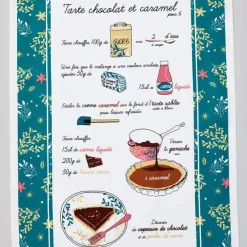 Tarte chocolat et caramel
pour 6
Faire chauffer 100g de
SUCRE
avec 2 d'eau
Une fois que le mélange a une couleur ambrée
ajouter 50g de
15cl de liquide
Étaler la crème caramel sur le fond d'tarte sablée
puis laisser refroidir
Faire chauffer:
15cl de crème liquide
200g de
50g de
Verser
la ganache
sur
le caramel
Décorer
de copeaux de chocolat
et de perles de sucre